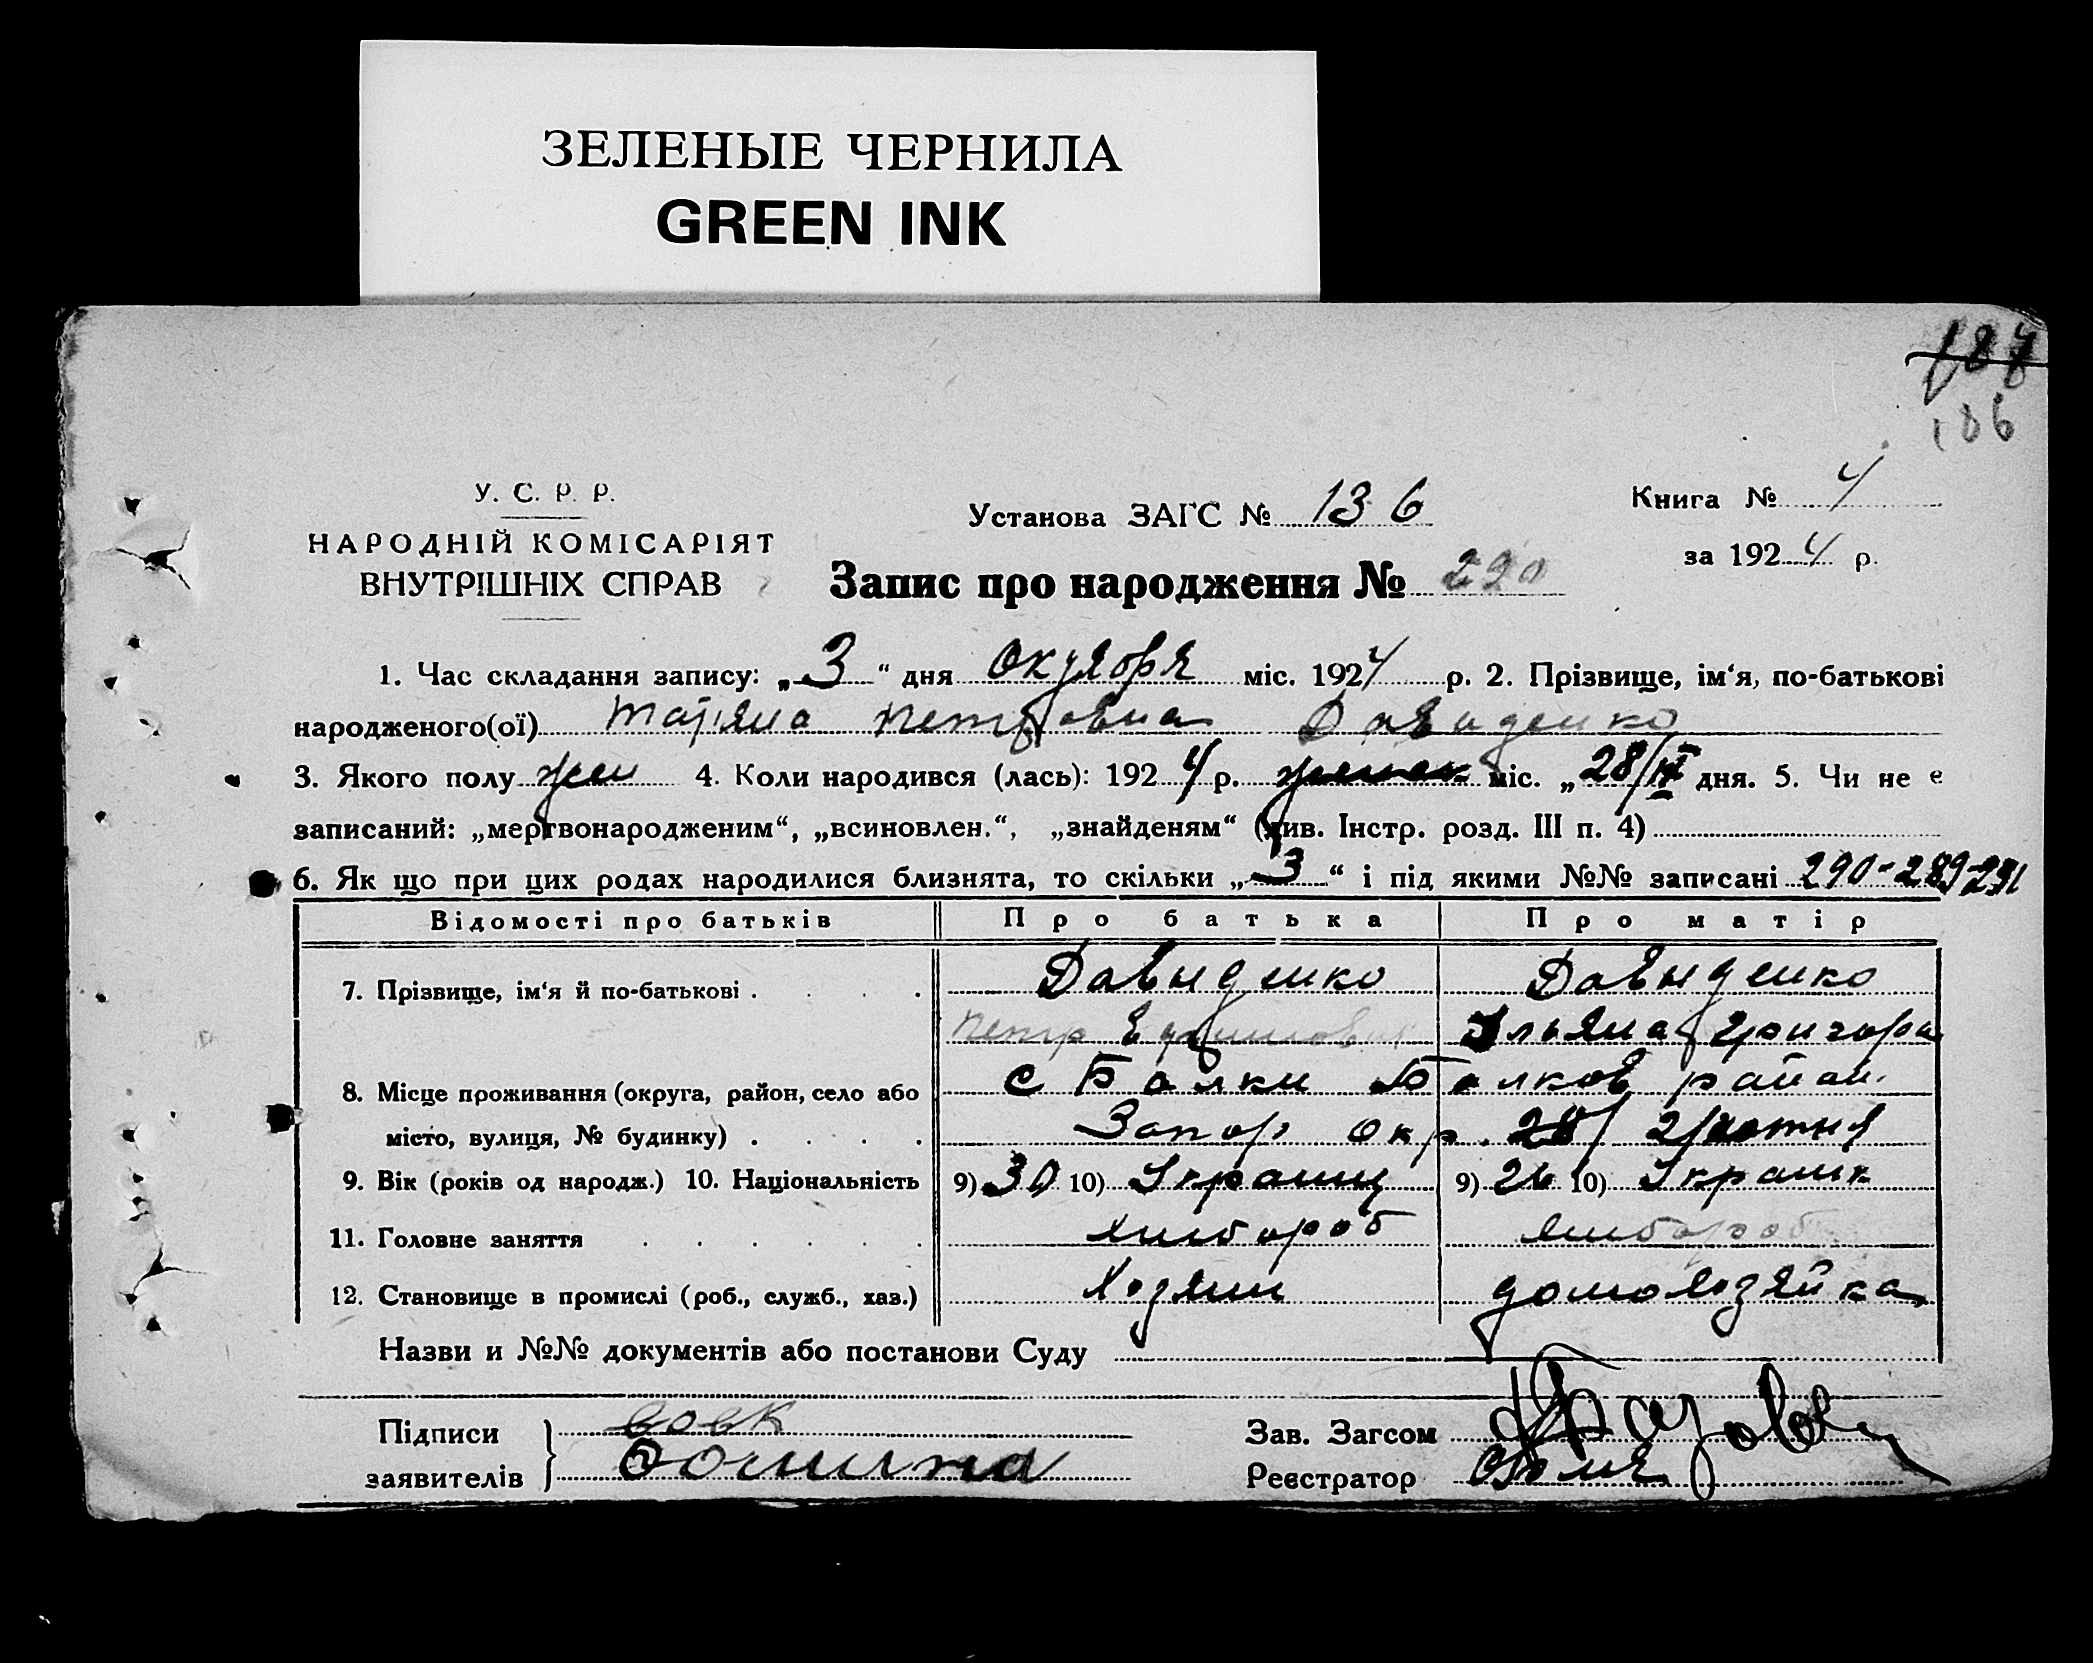 ЗЕЛЕНЫЕ ЧЕРНИЛА
GREEN INK
187
186
У. С. Р. Р.
НАРОДНІЙ КОМІСАРІЯТ
ВНУТРІШНІХ СПРАВ
Установа ЗАГС № 136
Книга № 4
за 1924 р.
Запис про народження № 290
1. Час складання запису: „3“ дня Октября міс. 1924 р. 2. Прізвище, ім‘я, по-батькові
народженого(ої) Татяна Петровна Давиденко
3. Якого полу жен 4. Коли народився (лась): 1924 р. міс. „28/IX дня. 5. Чи не є
записаний: „мертвонародженим“, „всиновлен.“, „знайденям“ (див. Інстр. розд. III п. 4)
6. Як що при цих родах народилися близнята, то скільки „3“ і під якими №№ записані 290-289-291
Відомості про батьків Про батька Про матір
7. Прізвище, ім‘я й по-батькові . . . . Давыденко Давыденко
Петр Ефимович Ульяна Григорь
8. Місце проживання (округа, район, село або с Балки Балков район.
місто, вулиця, № будинку) . . . . Запор окр. 28/
9. Вік (років од народж.) 10. Національність 9) 30 10) Украинц 9) 26 10) Украинк
11. Головне заняття . . . . . . Хлибороб Хлибороб
12. Становище в промислі (роб., служб., хаз.) Хозяин домохозяйка
Назви и №№ документів або постанови Суду
Підписи
заявителів
Зав. Загсом
Реєстратор